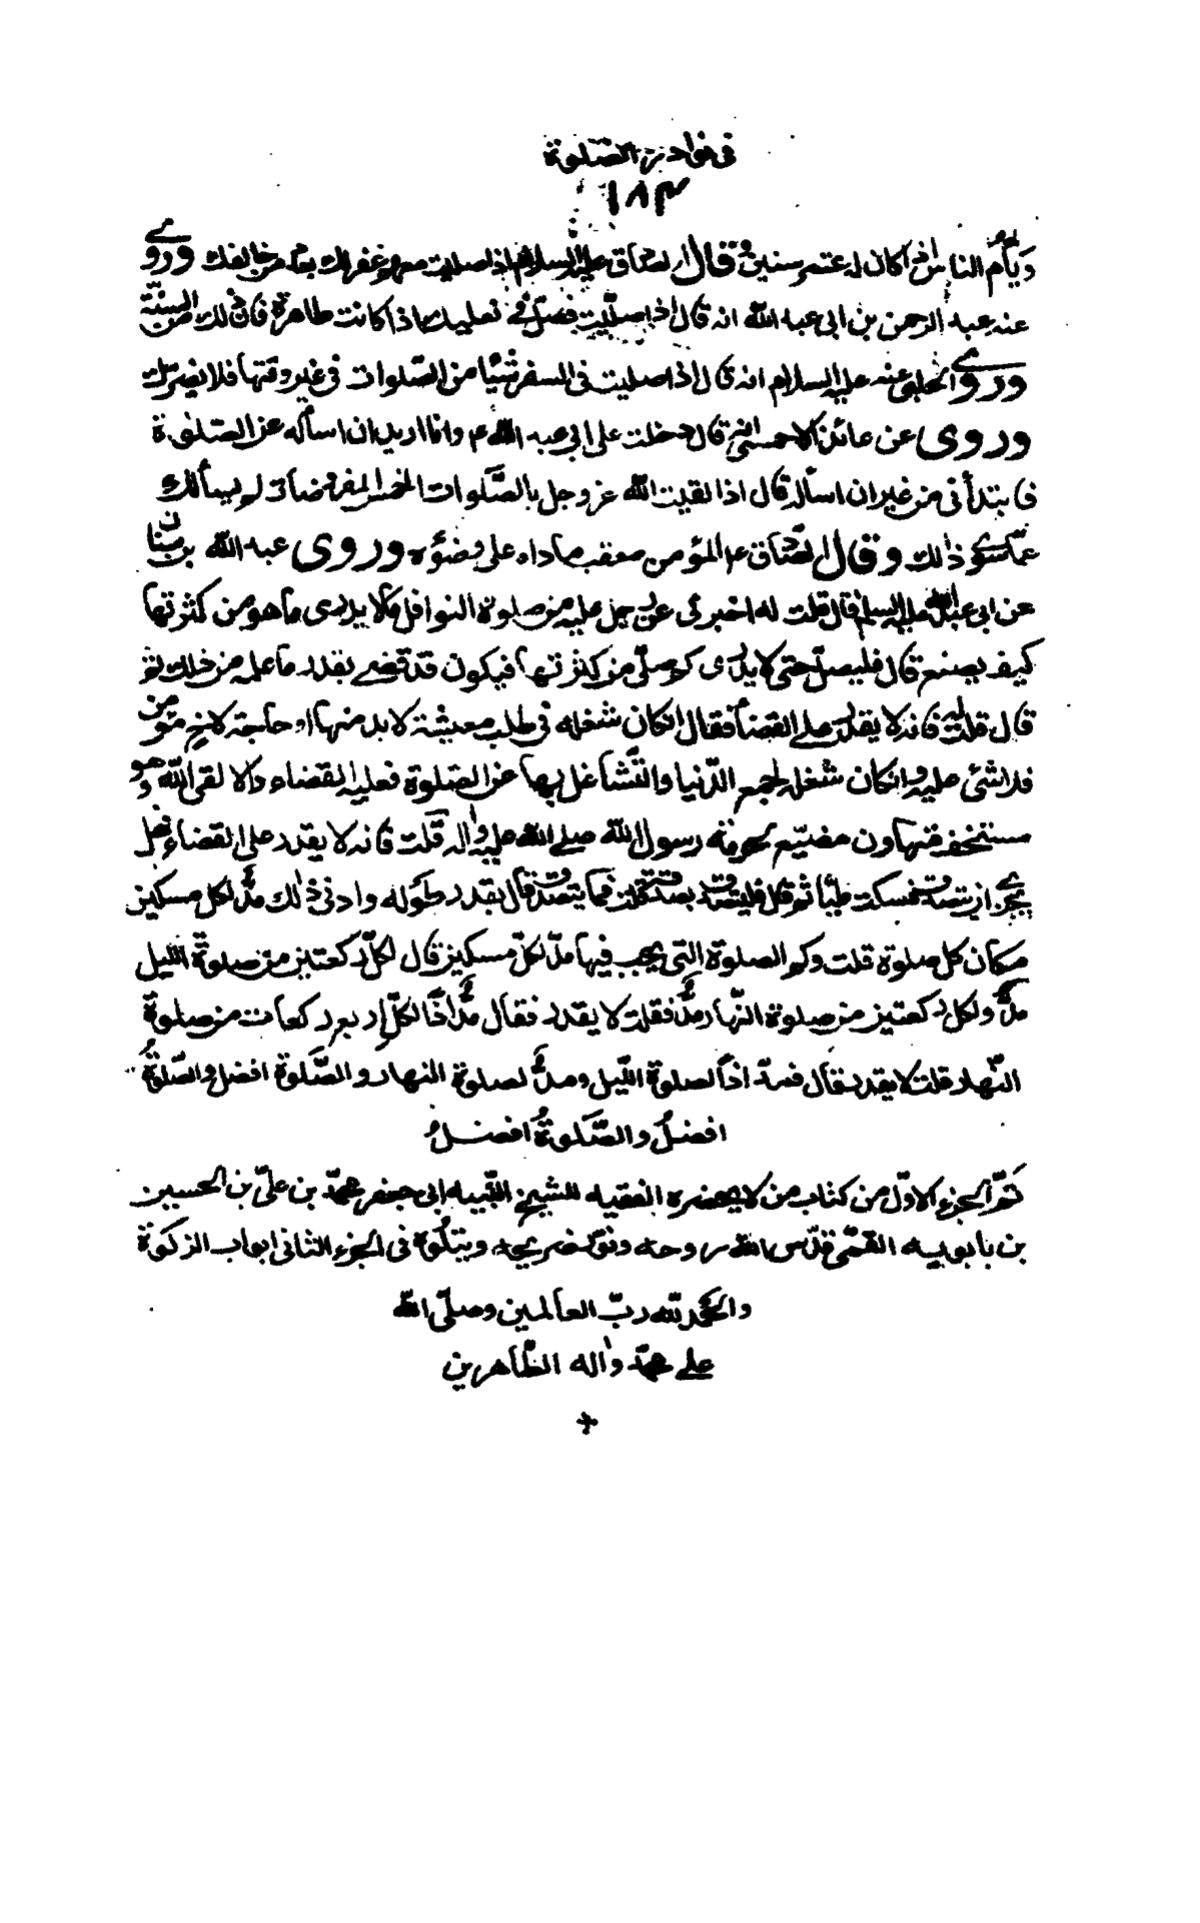 فى نوادر الصّلوة
١٨٣
ويأم الناس اذا كان له عشر سنين وقال الصادق عليه السلام اذا صليت معهم غفر لك بعدد من خالفك وروى
عنه عبد الرحمن بن ابى عبد الله انه قال اذا صلّيت فصلّ فى نعليك اذا كانت طاهرة فان ذلك من السنّة
وروى الحلبى عنه عليه السلام انه قال اذا صليت فى السفر شيئا من الصّلوات فى غير وقتها فلا يضرّك
وروى عن عائذ الاحمسى انه قال دخلت على ابى عبد الله ع وانا اريد ان اسأله عن الصّلوة
فابتدأنى من غير ان اسأله قال اذا لقيت الله عز وجل بالصّلوات الخمس المفروضات لم يسألك
عمّا سوى ذلك وقال الصّادق ع المؤمن معقب مادام على وضوئه وروى عبد الله بن سنان
عن ابى عبد الله عليه السلم قال قلت له اخبرنى عن رجل عليه من صلوة النوافل ما لا يدرى ما هو من كثرتها
كيف يصنع قال فليصلّ حتى لا يدرى كم صلّى من كثرتها فيكون قد قضى بقدر ما علمه من ذلك ثم
قال قلت له فانه لا يقدر على القضاء فقال ان كان شغله فى طلب معيشة لا بد منها او حاجة لاخ مؤمن
فلا شئ عليه وان كان شغله لجمع الدّنيا والتّشاغل بها عن الصّلوة فعليه القضاء والا لقى الله وهو
مستخف متهاون مضيّع لحرمة رسول الله صلى الله عليه واله قلت فانه لا يقدر على القضاء فهل
يجزى ان يتصدق فسكت مليّا ثم قال فليتصدق بصدقة قلت فما يتصدق قال بقدر طوله وادنى ذلك مدّ لكل مسكين
مكان كل صلوة قلت وكم الصلوة التى يجب فيها مدّ لكلّ مسكين قال لكلّ ركعتين من صلوة الليل
مدّ ولكل ركعتين من صلوة النّهار مدّ فقلت لا يقدر فقال مدّ اذًا لكلّ اربع ركعات من صلوة
النّهار قلت لا يقدر فقال فمدّ اذًا لصلوة اللّيل ومدّ لصلوة النهار والصّلوة افضل والصّلوةُ
افضلُ والصّلوةُ افضلُ
تمّ الجزء الاوّل من كتاب من لا يحضره الفقيه للشيخ النّبيه ابى جعفر محمّد بن علىّ بن الحسين
بن بابويه القمّى قدّس الله روحه ونوّر ضريحه ويتلوه فى الجزء الثانى ابواب الزكوة
والحمد لله ربّ العالمين وصلّى الله
على محمّد واله الطّاهرين